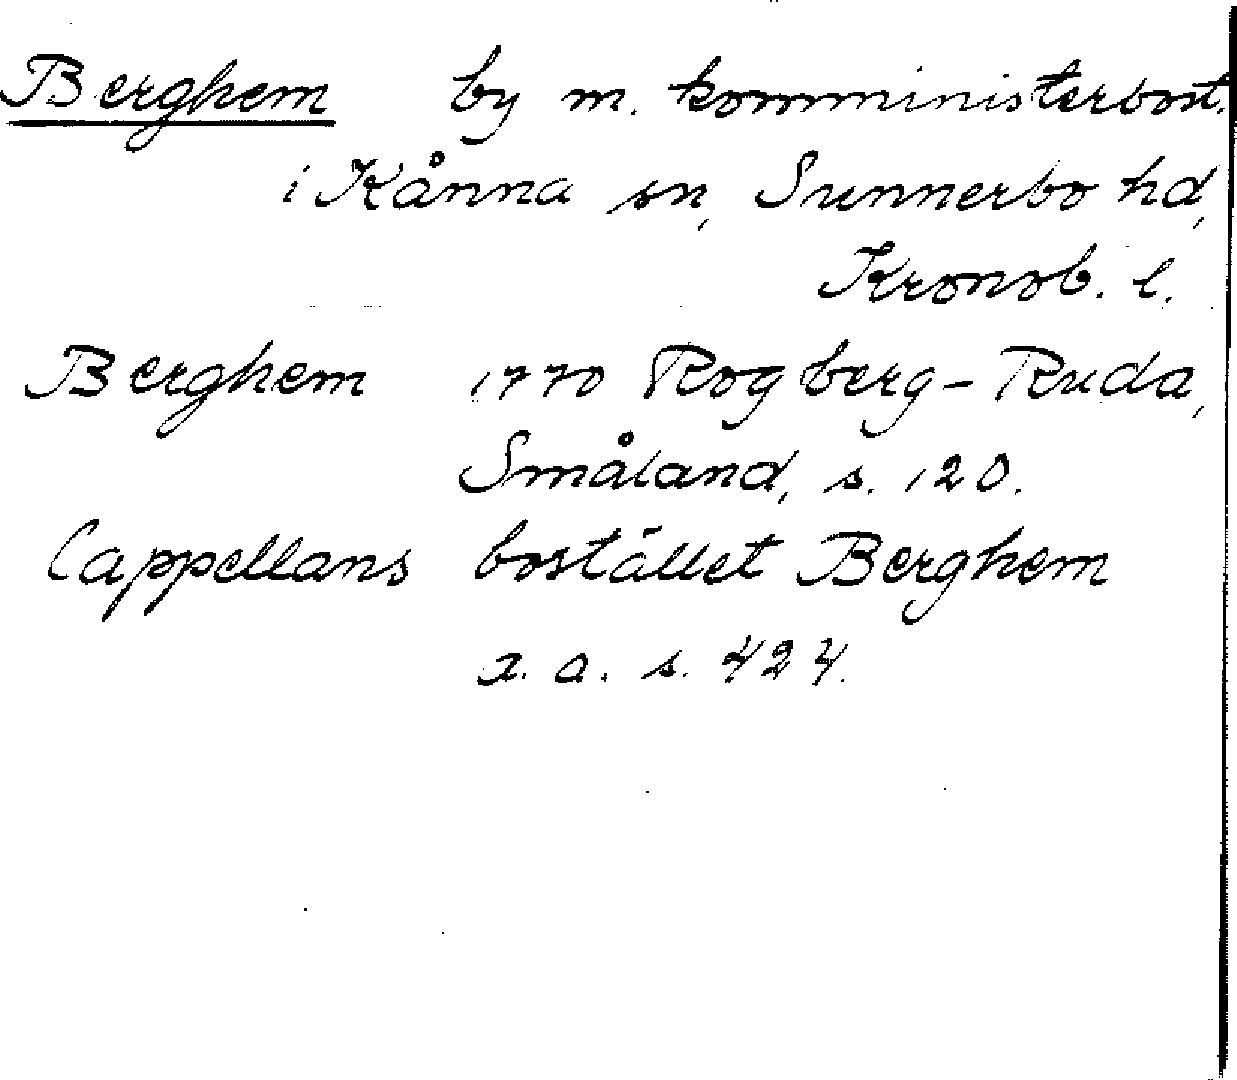 Berghem by m. komministerbost.
i Kånna sn, Sunnerbo hd,
Kronob. l.
Berghem 1770 Rogberg-Ruda,
Småland, s. 120.
Cappellans bostället Berghem
a. a. s. 424.